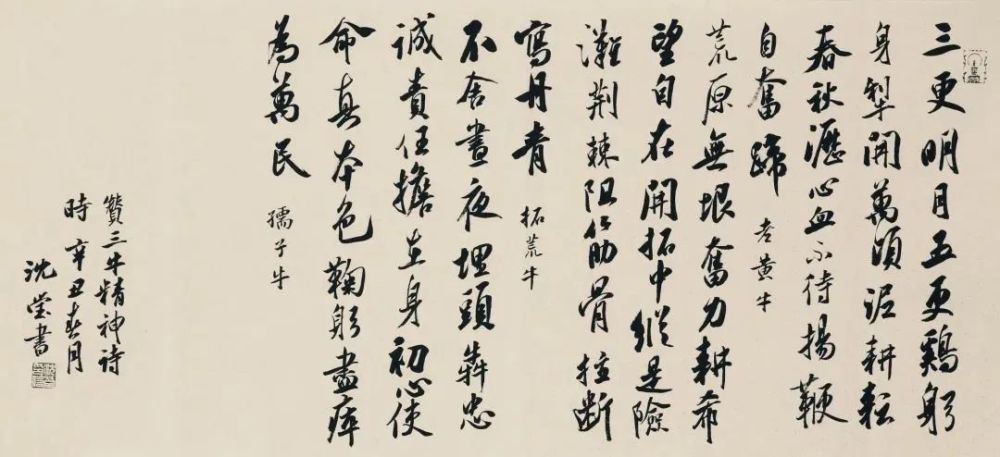 三更明月五更鷄躬
身犁開萬頃泥耕耘
春秋瀝心血不待揚鞭
自奮蹄 老黄牛
荒原無垠奮力耕希
望自在開拓中縱是險
灘荆棘阻筋骨拄断
寫丹青 拓荒牛
不舍晝夜埋頭犇忠
誠責任擔在身初心使
命真本色鞠躬盡瘁
為萬民 孺子牛
贊三牛精神詩
時辛丑春月
沈瑩書